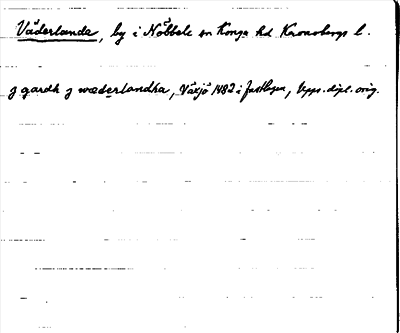 Väderlanda, by i Nöbbele sn Konga hd Kronobergs l.
j gardh j wæderlandha, Växjö 1482 i fasthgen, Upps. dipl. orig.